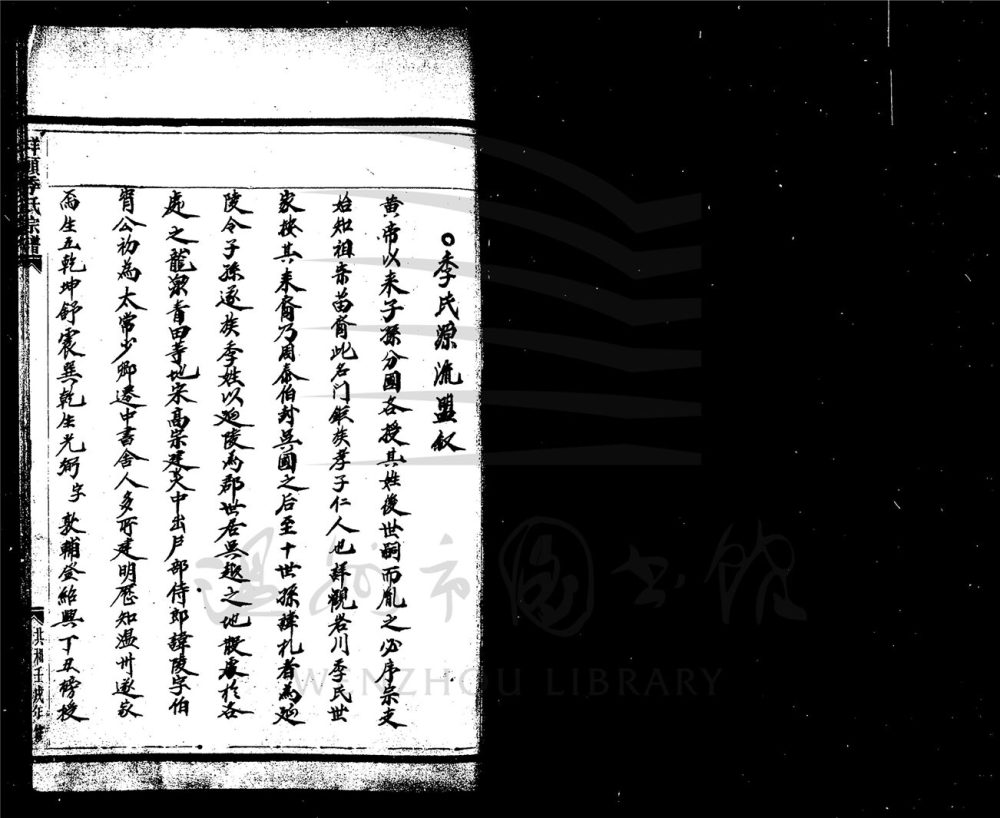 季氏源流盟叙
黄帝以来子孫分國各授其姓後世嗣而胤之必序宗支
始知祖宗苗裔此名门鉅族孝子仁人也詳觀岩川季氏世
家按其来裔乃周泰伯封吳國之后至十世孫諱札者為延
陵令子孫遂族季姓以延陵為郡世居吳越之地散處於各
處之龍泉青田等地宋高宗建炎中出戶部侍郎諱陵字伯
甯公初為太常少卿遷中書舍人多所建明歷知温州遂家
而生五乾坤舒震巽乾生光弼字敦輔登紹興丁丑榜授
季氏宗譜
洪湘壬戌年
溫州市圖書館
WENZHOU LIBRARY